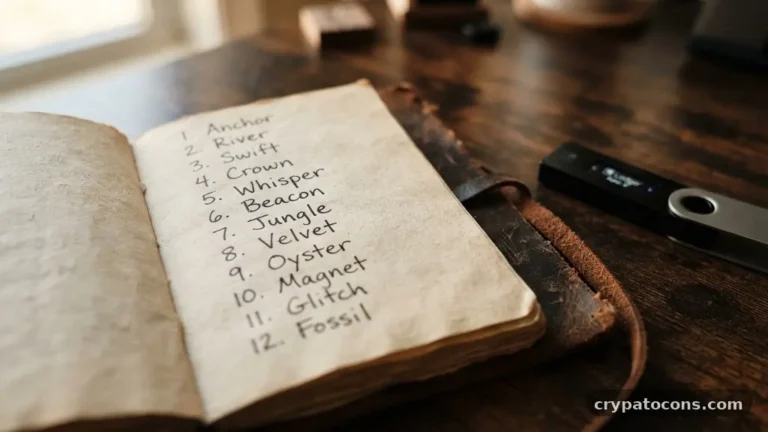 1 Anchor
2 River
3. Swift
4. Crown
5. Whisper
6. Beacon
7. Jungle
8. Velvet
9. Oyster
10. Magnet
11. Glitch
12. Fossil
crypatocons.com